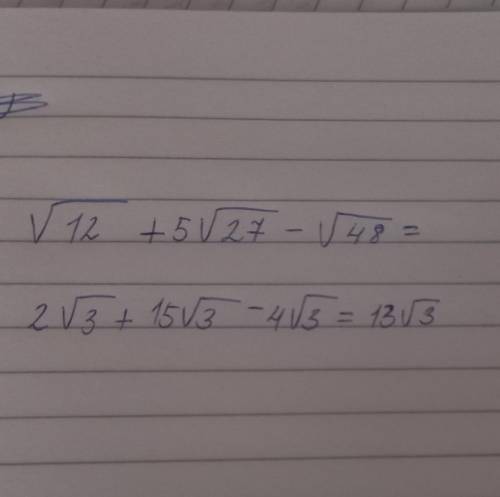 √12 + 5√27 - √48 =
2√3 + 15√3 - 4√3 = 13√3